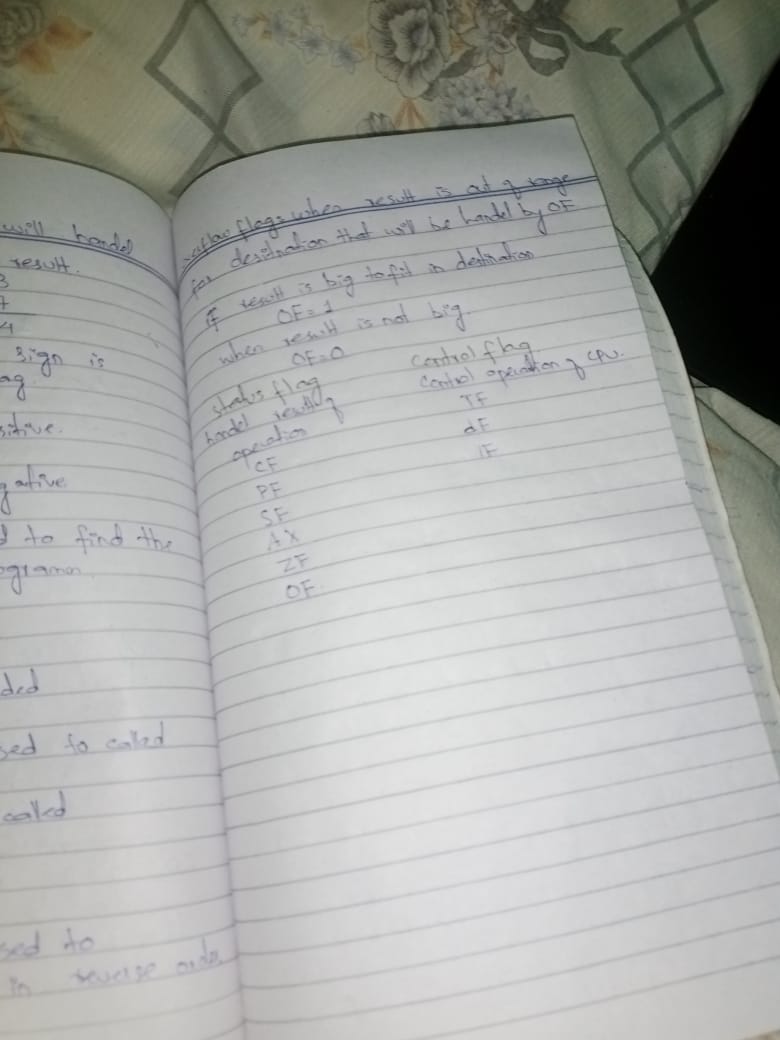 will handel
result.
3
7
4
sign is
ag
sitive.
gative
d to find the
ogramm
ded
sed to called
called
sed to
in reverse order.
flow flags: when result is out of range
for desitnation that will be handel by OF
if result is big to fit in destination
OF = 1
when result is not big.
OF = 0
status flag
handel result of
operation
CF
PF
SF
AX
ZF
OF
Control flag
Control operation of CPU.
TF
dF
IF